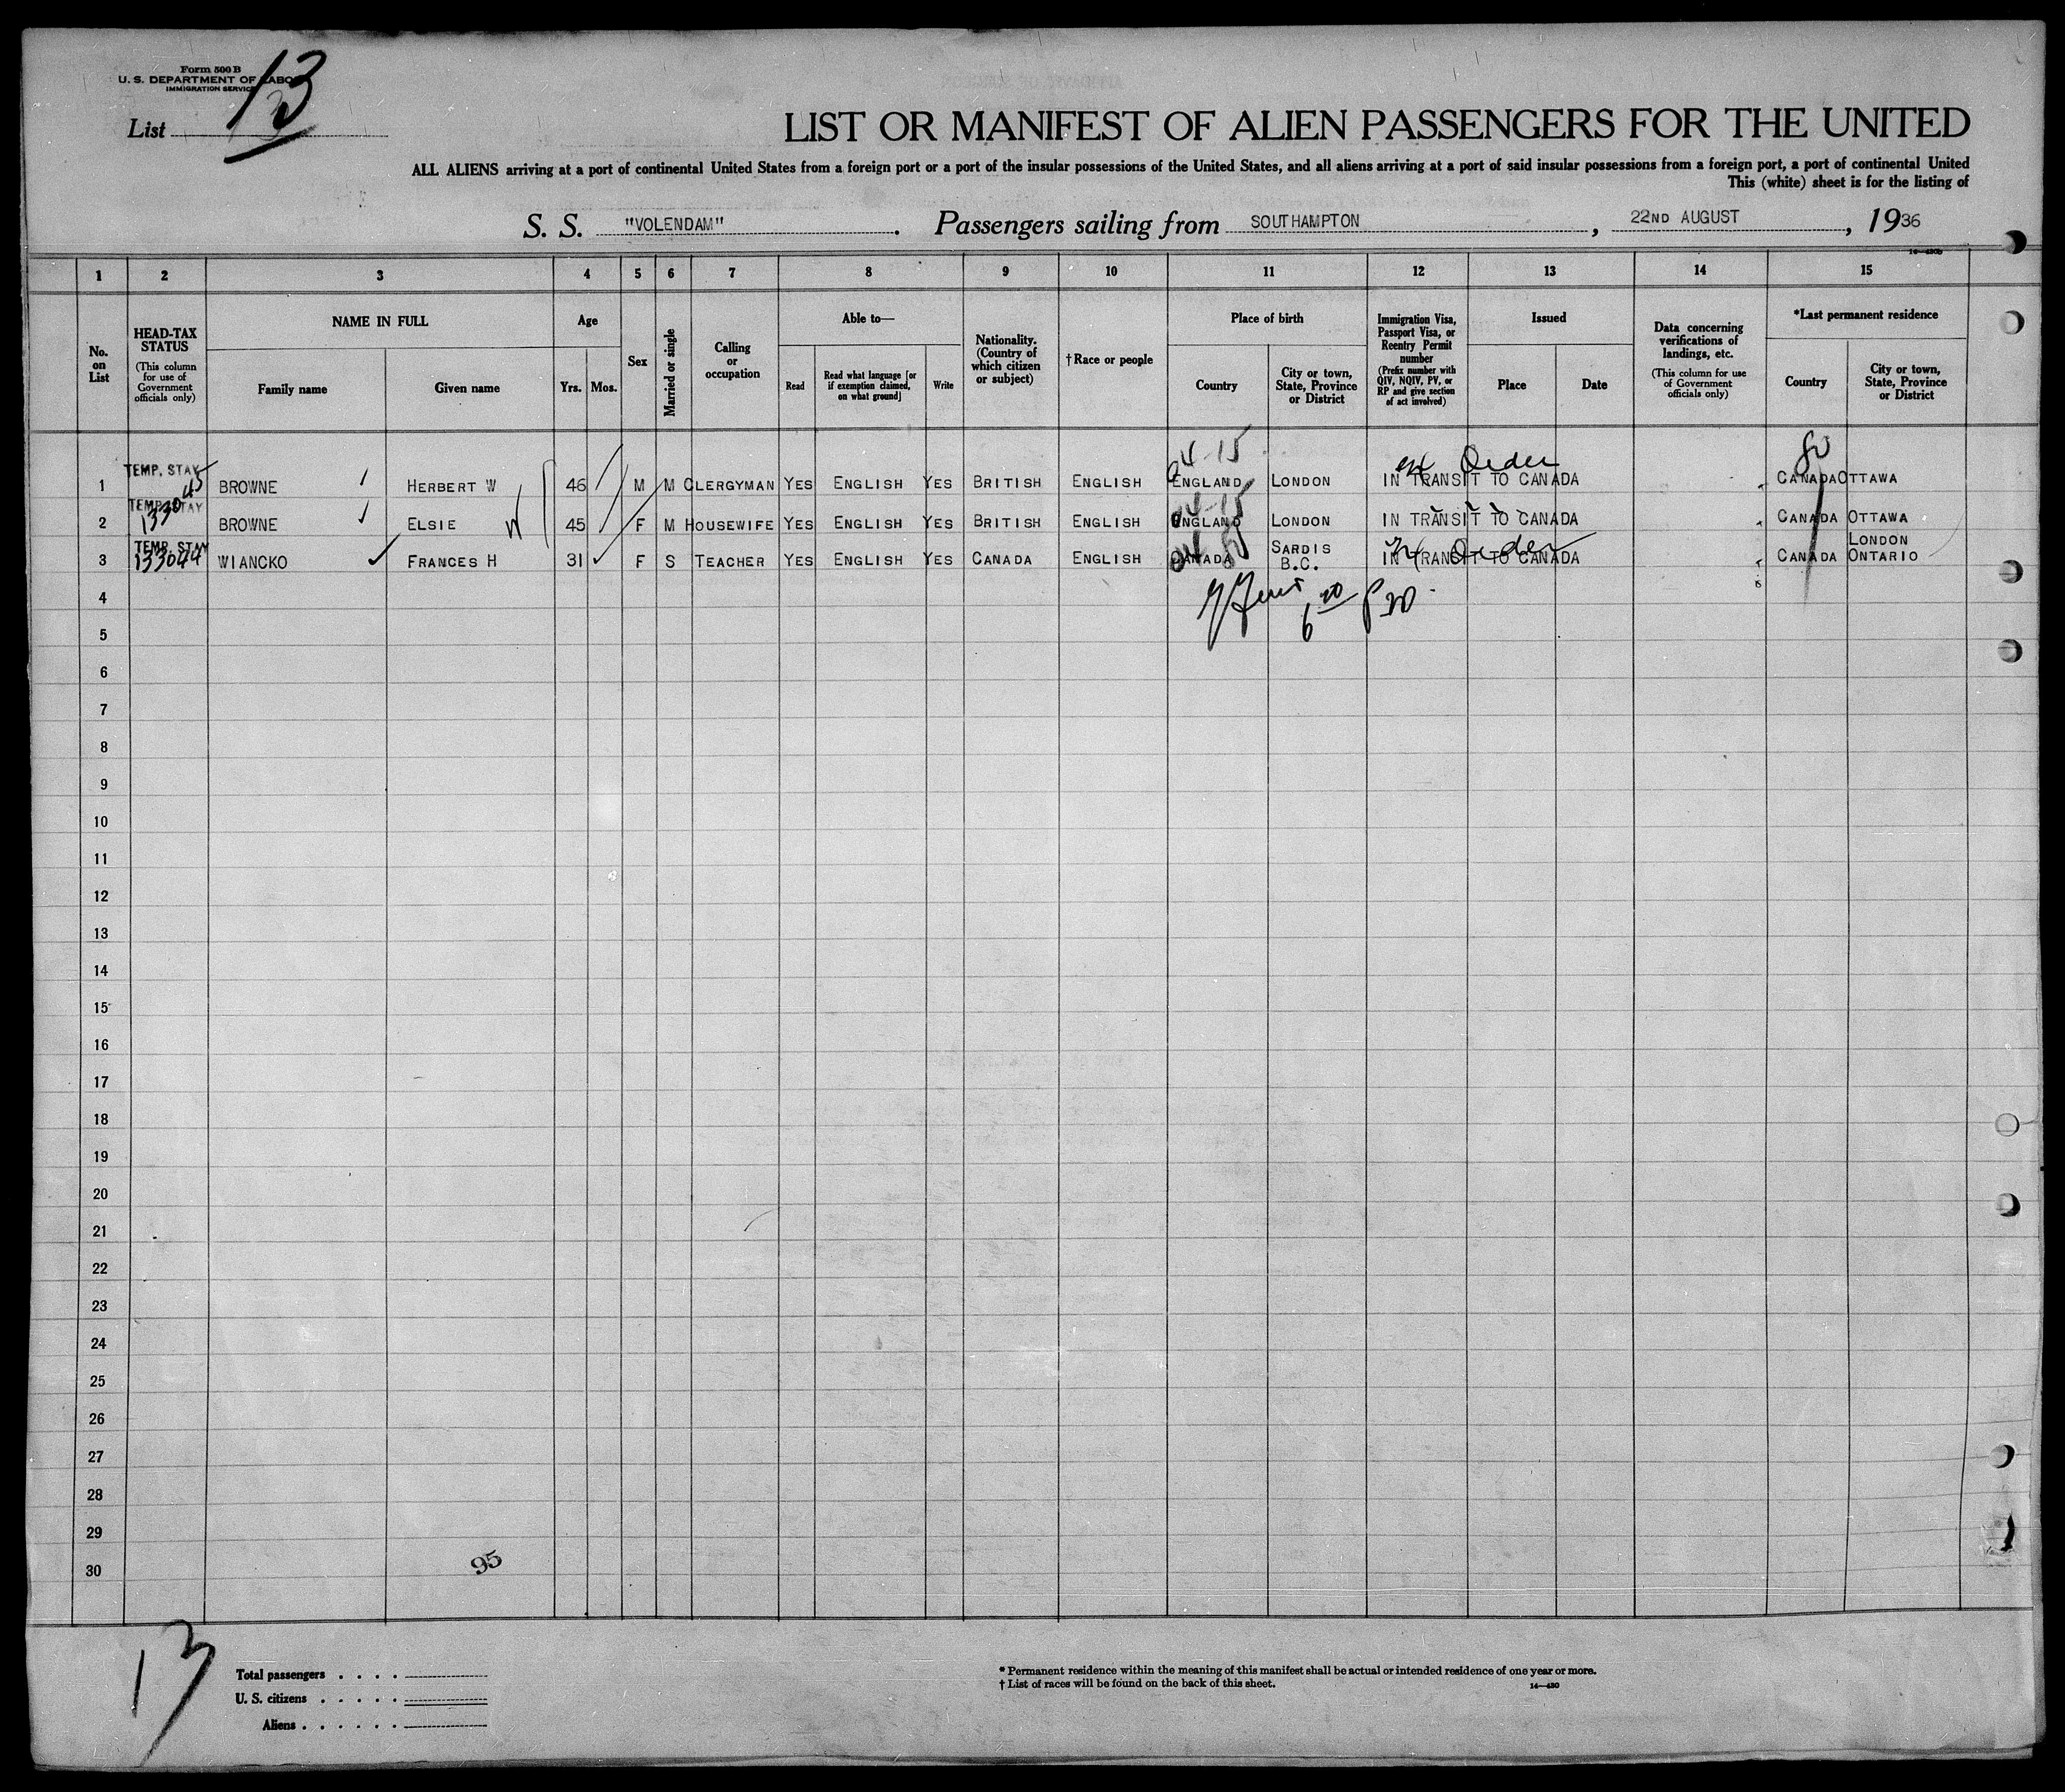 Form 500 B
U. S. DEPARTMENT OF LABOR
IMMIGRATION SERVICE
List 13
LIST OR MANIFEST OF ALIEN PASSENGERS FOR THE UNITED
ALL ALIENS arriving at a port of continental United States from a foreign port or a port of the insular possessions of the United States, and all aliens arriving at a port of said insular possessions from a foreign port, a port of continental United
This (white) sheet is for the listing of
S. S. "VOLENDAM". Passengers sailing from SOUTHAMPTON, 22ND AUGUST, 1936
1 2 3 4 5 6 7 8 9 10 11 12 13 14 15
No. on List
HEAD-TAX STATUS
(This column for use of Government officials only)
NAME IN FULL
Family name
Given name
Age
Yrs.
Mos.
Sex
Married or single
Calling or occupation
Able to—
Read
Read what language [or if exemption claimed, on what ground]
Write
Nationality. (Country of which citizen or subject)
†Race or people
Place of birth
Country
City or town, State, Province or District
Immigration Visa, Passport Visa, or Reentry Permit number
(Prefix number with QIV, NQIV, PV, or RP and give section of act involved)
Issued
Place
Date
Data concerning verifications of landings, etc.
(This column for use of Government officials only)
*Last permanent residence
Country
City or town, State, Province or District
04-15
Order
80
1 TEMP. STAY BROWNE HERBERT W 46 M M CLERGYMAN YES ENGLISH YES BRITISH ENGLISH ENGLAND LONDON IN TRANSIT TO CANADA CANADA OTTAWA
2 TEMP. STAY 13304 45 BROWNE ELSIE 45 F M HOUSEWIFE YES ENGLISH YES BRITISH ENGLISH ENGLAND LONDON IN TRANSIT TO CANADA CANADA OTTAWA
3 TEMP. STAY 133044 WIANCKO FRANCES H 31 F S TEACHER YES ENGLISH YES CANADA ENGLISH CANADA SARDIS B.C. IN TRANSIT TO CANADA CANADA LONDON ONTARIO
Order
4
5
6
7
8
9
10
11
12
13
14
15
16
17
18
19
20
21
22
23
24
25
26
27
28
29
30
95
13
Total passengers
U. S. citizens
Aliens
* Permanent residence within the meaning of this manifest shall be actual or intended residence of one year or more.
† List of races will be found on the back of this sheet.
14—430